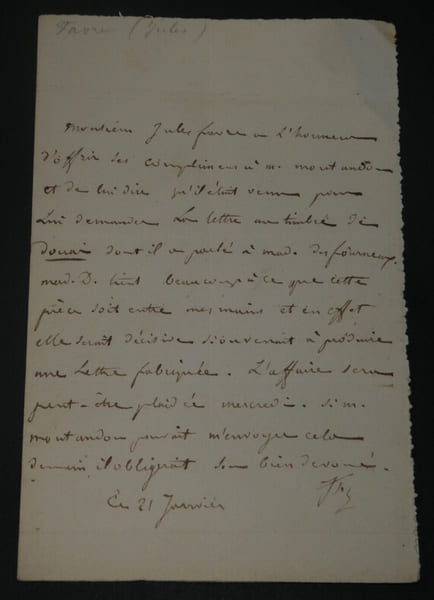 Favre (Jules)
Monsieur Jules favre a L'honneur
d'offrir ses complimens à m. montandon
et de lui dire qu'il était venu pour
Lui demander La lettre au timbre de
douai dont il a parlé à mad. desfourneux.
mad. D. tient beaucoup à ce que cette
pièce soit entre mes mains et en effet
elle serait décisive si on venait à produire
une Lettre fabriquée. L'affaire sera
peut-être plaidée mercredi. si m.
montandon pouvait m'envoyer cela
demain il obligerait son bien dévoué.
Ce 21 Janvier